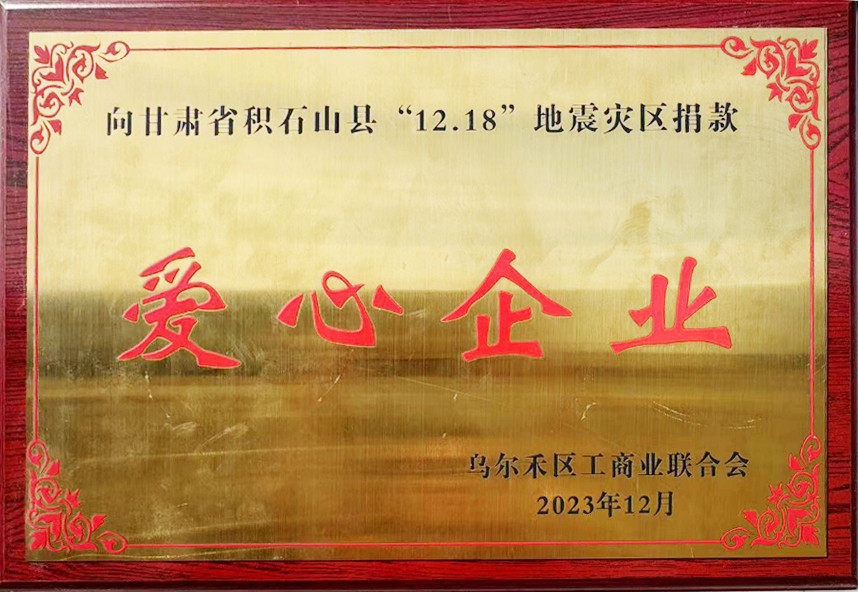 向甘肃省积石山县“12.18”地震灾区捐款
爱心企业
乌尔禾区工商业联合会
2023年12月